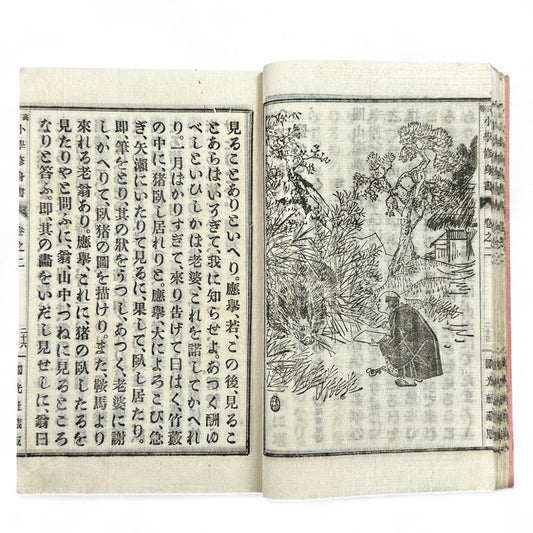 小學修身書 卷之二
國光社藏版
見ることありといへり。應擧、若、この後、見るこ
とあらは、いそぎて、我に知らせよ。あつく酬ゆ
べしといひしかは、老婆、これを諾してかへれ
り。一月はかりすぎて、來り告げて曰はく、竹藪
の中に、猪臥し居れりと。應擧、大によろこび、急
ぎ、矢瀨にいたりて見るに、果して、臥し居たり。
即、筆をとり、其の狀をうつし、あつく、老婆に謝
し、かへりて、臥猪の圖を描けり。また、鞍馬より
來れる老翁あり。應擧、これに猪の臥したるを
見たりやと問ふに、翁、山中、つねに見るところ
なりと答ふ。即、其の畫をいだし見せしに、翁曰
小學修身書 卷之二 二十六 國光社藏版